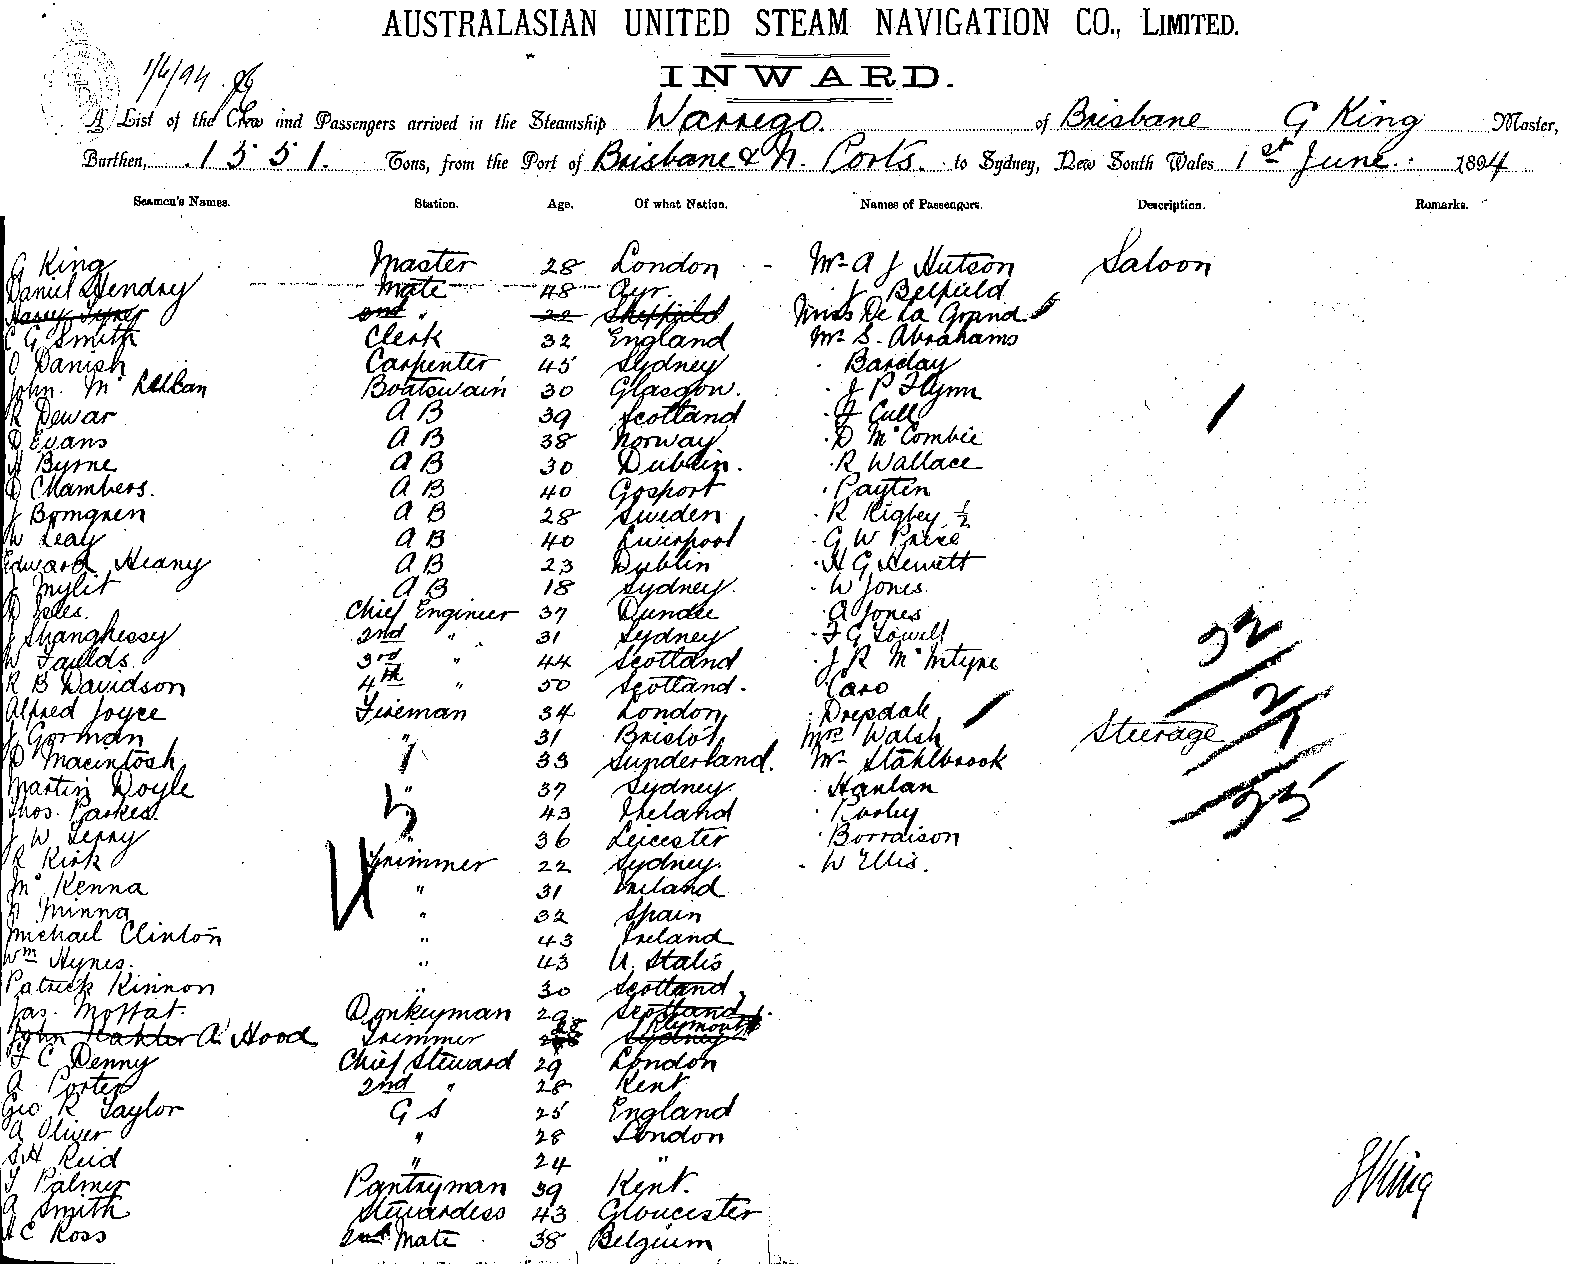 AUSTRALASIAN UNITED STEAM NAVIGATION CO., LIMITED.
1/6/94
INWARD.
A List of the Crew and Passengers arrived in the Steamship Warrego. of Brisbane G King Master,
Burthen, 1551. Tons, from the Port of Brisbane & N. Ports. to Sydney, New South Wales 1st June 1894
Seamen's Names. Station. Age. Of what Nation. Names of Passengers. Description. Remarks.
G King Master 28 London - Mr A J Hutson Saloon
Daniel Hendry Mate 48 Ayr. J Belfield
Harry 2nd " Sheffield Miss De La Grand
C G Smith Clerk 32 England Mr S. Abrahams
O Danish Carpenter 45 Sydney " Barclay
John Mc Boatswain 30 Glasgow. " J P Flynn
R Dewar A B 39 Scotland " F Cull
D Evans A B 38 Norway " D McCombie
H Byrne A B 30 Dublin. " R Wallace
D Chambers. A B 40 Gosport " Payten
J Bomgren A B 28 Sweden " R Rigby ½
W Leay A B 40 Liverpool " G W Price
Edward Heany A B 23 Dublin " H G Hewett
J Mylit A B 18 Sydney. " W Jones.
D Chief Engineer 37 Dundee " A Jones
J Shanghessy 2nd " 31 Sydney " F G Lowell
W Faulds. 3rd " 44 Scotland " J R McIntyre 32
R B Davidson 4th " 50 Scotland. " Caro
Alfred Joyce Fireman 34 London " Drepdale
J Gorman " 31 Bristol Mrs Walsh Steerage
D Macintosh " 33 Sunderland. Mr Stahlbrook
Martin Doyle " 37 Sydney " Hanlan
Thos. Parkes. " 43 Ireland "
J W Terry " 36 Leicester " Borraison
R Kirk Trimmer 22 Sydney. " W Ellis.
Mc Kenna " 31 Ireland
N Minna " 32 Spain
Michael Clinton " 43 Ireland
Wm Hynes. " 43 U. States
Patrick Kinnon " 30 Scotland
Jas. Moffat. Donkeyman 29 Scotland.
John A. Hood Trimmer 28 Sydney Plymouth
F C Denny Chief Steward 29 London
A Porter 2nd " 28 Kent
Geo R Taylor G S 25 England
A Oliver " 28 London
S H Reid " 24 "
T Palmer Pantryman 39 Kent.
A Smith Stewardess 43 Gloucester
A C Ross 2nd Mate 38 Belgium
G King